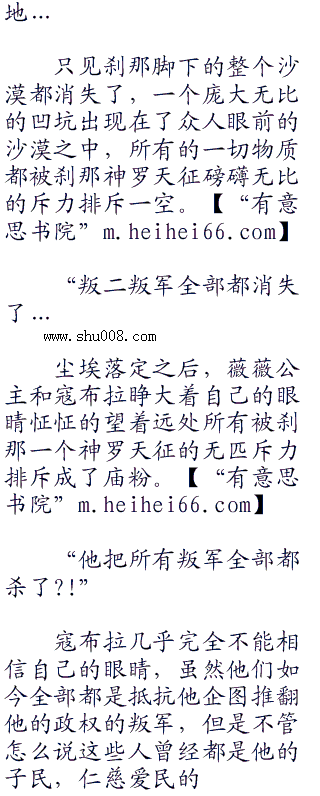 地…
只见刹那脚下的整个沙
漠都消失了，一个庞大无比
的凹坑出现在了众人眼前的
沙漠之中，所有的一切物质
都被刹那神罗天征磅礴无比
的斥力排斥一空。【“有意
思书院”m.heihei66.com】
“叛二叛军全部都消失
了…
www.shu008.com
尘埃落定之后，薇薇公
主和寇布拉睁大着自己的眼
睛怔怔的望着远处所有被刹
那一个神罗天征的无匹斥力
排斥成了庙粉。【“有意思
书院”m.heihei66.com】
“他把所有叛军全部都
杀了?!”
寇布拉几乎完全不能相
信自己的眼睛，虽然他们如
今全部都是抵抗他企图推翻
他的政权的叛军，但是不管
怎么说这些人曾经都是他的
子民，仁慈爱民的